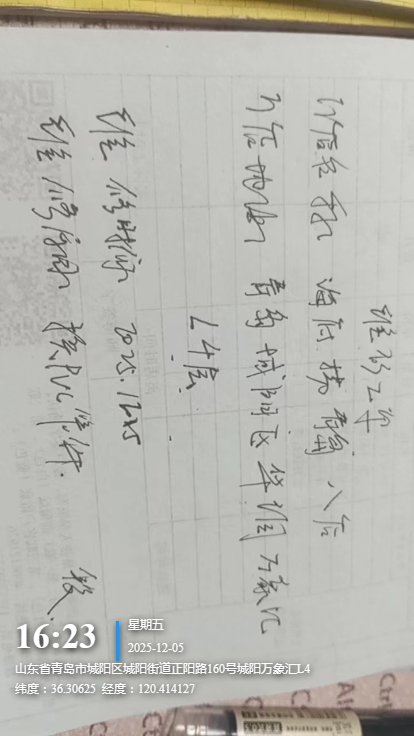 维修工单
门店名称 海底捞青岛八店
门店地址 青岛城阳区华润万象汇
L4层
维修时间 2025.12.5
维修
16:23
星期五
2025-12-05
山东省青岛市城阳区城阳街道正阳路160号城阳万象汇L4
纬度：36.30625 经度：120.414127